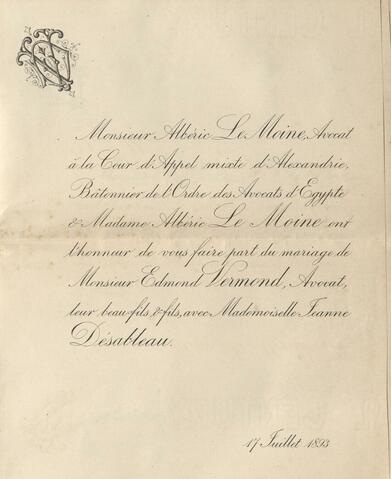 Monsieur Albéric Le Moine, Avocat
à la Cour d'Appel mixte d'Alexandrie,
Bâtonnier de l'Ordre des Avocats d'Egypte
& Madame Albéric Le Moine ont
l'honneur de vous faire part du mariage de
Monsieur Edmond Vermond, Avocat,
leur beau-fils & fils, avec Mademoiselle Jeanne
Désableau.
17 Juillet 1893